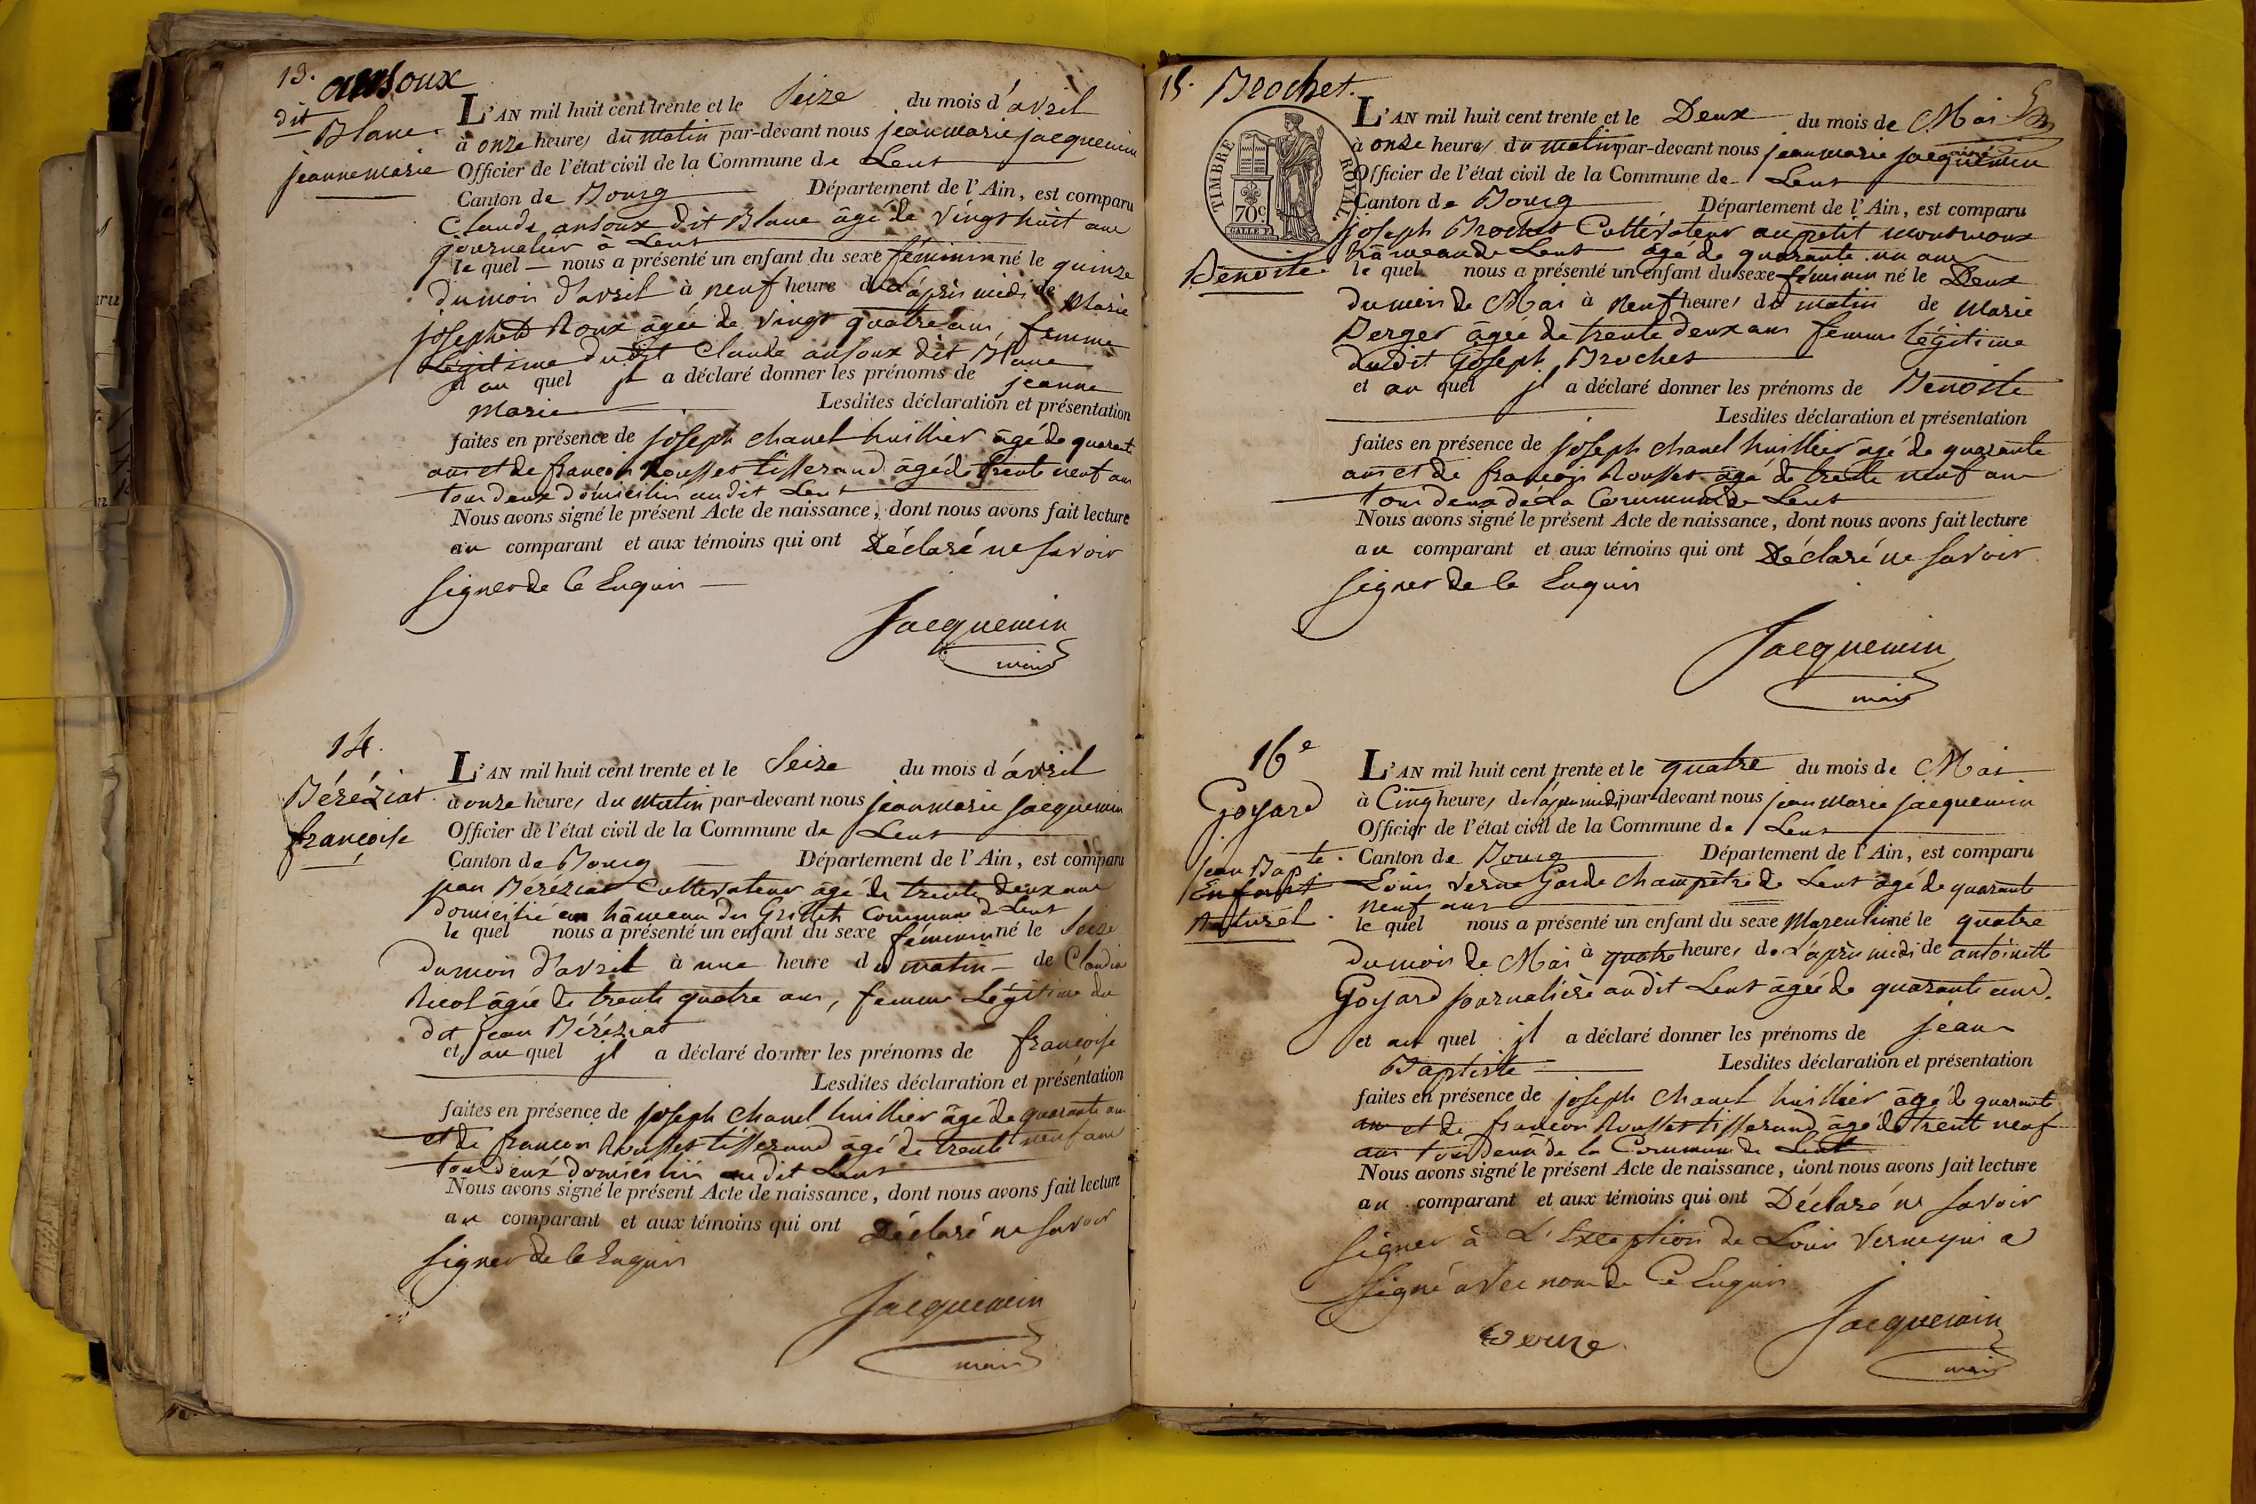 13. ansoux
dit
Blanc.
jeanne marie
L'AN mil huit cent trente et le Seize du mois d'avril
à onze heures du matin par-devant nous jean marie jacquemin
Officier de l'état civil de la Commune de Lent
Canton de Bourg Département de l'Ain, est comparu
Claude ansoux dit Blanc âgé de vingt huit ans
journalier à Lent
le quel nous a présenté un enfant du sexe féminin né le quinze
du mois d'avril à neuf heure de L'après midi de Marie
josephte Roux âgée de vingt quatre ans, femme
Légitime dudit Claude ansoux dit Blanc
et au quel jl a déclaré donner les prénoms de jeanne
Marie Lesdites déclaration et présentation
faites en présence de joseph chanel huillier âgé de quarante
ans et de françois Rousset tisserand âgé de trente neuf ans
tous deux domiciliés audit Lent
Nous avons signé le présent Acte de naissance, dont nous avons fait lecture
au comparant et aux témoins qui ont Déclaré ne savoir
signer de ce Enquis
Jacquemin
maire
14.
Béréziat
françoise
L'AN mil huit cent trente et le Seize du mois d'avril
à onze heures du matin par-devant nous jean marie jacquemin
Officier de l'état civil de la Commune de Lent
Canton de Bourg Département de l'Ain, est comparu
jean Béréziat Cultivateur âgé de trente deux ans
domicilié au hâmeau des Grillets Commune de Lent
le quel nous a présenté un enfant du sexe féminin né le Seize
du mois d'avril à une heure du matin de Claudine
Nicol âgée de trente quatre ans, femme Légitime du
dit jean Béréziat
et au quel jl a déclaré donner les prénoms de françoise
Lesdites déclaration et présentation
faites en présence de joseph chanel huillier âgé de quarante ans
et de françois Rousset tisserand âgé de trente neuf ans
tous deux domiciliés audit Lent
Nous avons signé le présent Acte de naissance, dont nous avons fait lecture
au comparant et aux témoins qui ont Déclaré ne savoir
signer de ce Enquis
Jacquemin
maire
15. Brochet.
TIMBRE ROYAL
70c
Benoite
L'AN mil huit cent trente et le Deux du mois de Mai
à onze heures du matin par-devant nous jean marie jacquemin
Officier de l'état civil de la Commune de Lent
Canton de Bourg Département de l'Ain, est comparu
joseph Brochet Cultivateur au petit
hâmeau de Lent âgé de quarante un ans
le quel nous a présenté un enfant du sexe féminin né le Deux
du mois de Mai à neuf heures du matin de Marie
Berger âgée de trente deux ans femme légitime
dudit joseph Brochet
et au quel jl a déclaré donner les prénoms de Benoite
Lesdites déclaration et présentation
faites en présence de joseph chanel huillier âgé de quarante
ans et de françois Rousset âgé de trente neuf ans
tous deux de La Commune de Lent
Nous avons signé le présent Acte de naissance, dont nous avons fait lecture
au comparant et aux témoins qui ont Déclaré ne savoir
signer de ce Enquis
Jacquemin
maire
16e
Goyard
jean Bapte.
Enfant
Naturel
L'AN mil huit cent trente et le quatre du mois de Mai
à Cinq heures de l'après midi par-devant nous jean marie jacquemin
Officier de l'état civil de la Commune de Lent
Canton de Bourg Département de l'Ain, est comparu
Louis Verne Garde champêtre de Lent âgé de quarante
neuf ans
le quel nous a présenté un enfant du sexe Masculin né le quatre
du mois de Mai à quatre heures de L'après midi de antoinette
Goyard journalière audit Lent âgée de quarante ans.
et au quel jl a déclaré donner les prénoms de jean
Baptiste Lesdites déclaration et présentation
faites en présence de joseph chanel huillier âgé de quarante
ans et de françois Rousset tisserand âgé de trente neuf
ans tous deux de la Commune de Lent
Nous avons signé le présent Acte de naissance, dont nous avons fait lecture
au comparant et aux témoins qui ont Déclaré ne savoir
signer à L'Exception de Louis Verne qui a
signé avec nous de Ce Enquis
verne
Jacquemin
maire